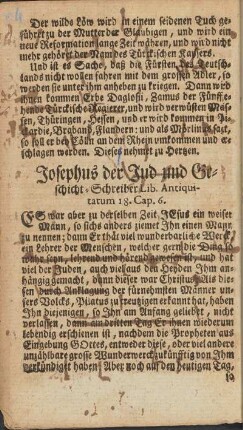 Der wilde Löw wird in einem seidenen Tuch ge-
führt zu der Mutter der Glaubigen, und wird ein
neue Reformation lange Zeit währen, und wird nicht
mehr gehört der Nam des Türckischen Kaysers.
Und ist es Sache, daß die Fürsten des Teutsch-
lands nicht wollen fahren mit dem grossen Adler, so
werden sie unter ihn anheben zu kriegen. Dann wird
ihnen kommen Erbo Daglofii, Gamus der Fünffe
ende Türckische Regierer, und wird verwüsten Mas-
sen, Thüringen, Hessen, und er wird kommen in Pi-
cardie, Braband, Flandern: und als Mörlin sagt,
so soll er bey Cöln an dem Rhein umkommen und er-
schlagen werden. Dieses nehmet zu Hertzen.
Josephus der Jud und Ge-
schicht-Schreiber Lib. Antiqui-
tatum 18. Cap. 6.
ES war aber zu derselben Zeit JEsus ein weiser
Mann, so sichs anders ziemet Ihn einen Mann
zu nennen; dann Er thät viel wunderbarliche Werck,
ein Lehrer der Menschen, welcher gern die Ding so
wahr seyn, lehrend und hörend gewesen ist, und hat
viel der Juden, auch vielaus den Heyden Ihm an-
hängig gemacht, dann dieser war Christus. Als die-
sen durch Anklagung der fürnehmsten Männer un-
sers Volcks, Pilatus zu creutzigen erkannt hat, haben
Ihn diejenigen, so Ihn am Anfang geliebt, nicht
verlassen, dann am dritten Tag Er ihnen wiederum
lebendig erschienen ist, nachdem die Propheten aus
Eingebung GOttes, entweder diese, oder viel andere
unzählbare grosse Wunderwerck zukünfftig von Ihm
verkündigt haben. Aber noch auf den heutigen Tag,
so